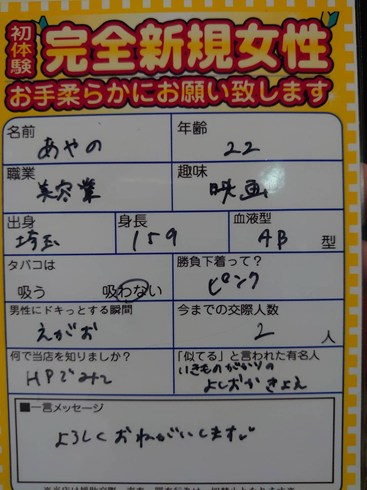 初体験
完全新規女性
お手柔らかにお願い致します
名前 あやの 年齢 22
職業 美容業 趣味 映画
出身 埼玉 身長 159 血液型 AB 型
タバコは 吸う 吸わない 勝負下着って? ピンク
男性にドキっとする瞬間 えがお 今までの交際人数 2 人
何で当店を知りましたか? HPでみて 「似てる」と言われた有名人 いきものがかりの
よしおか きよえ
■一言メッセージ
よろしくおねがいします